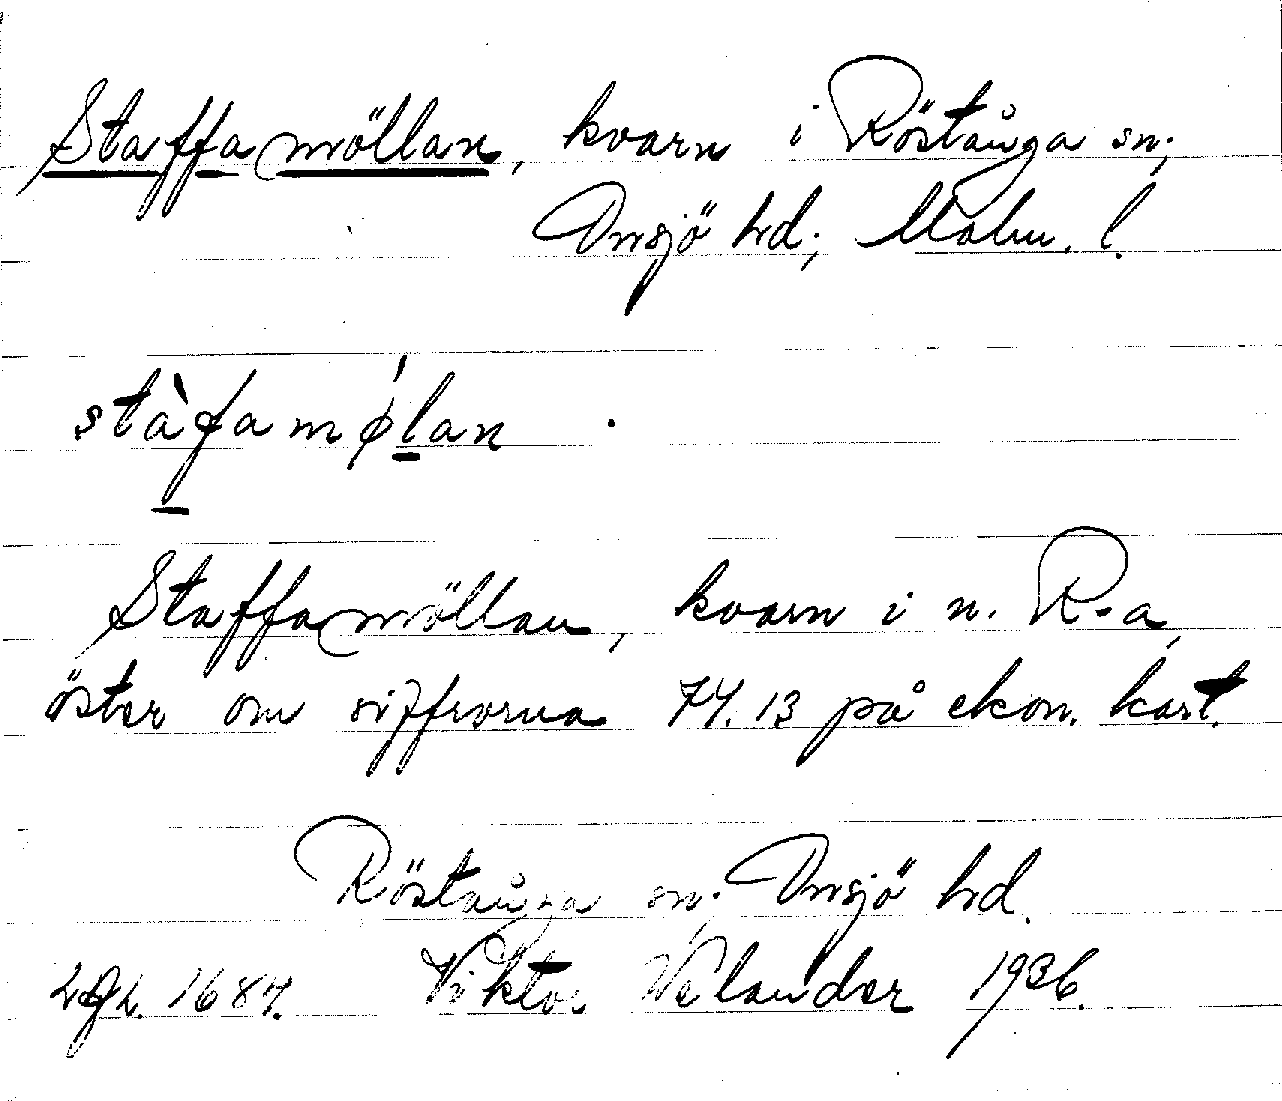 Staffamöllan, kvarn i Röstånga sn;
Onsjö hd; Malm. l.
stàfamǿlan
Staffamöllan, kvarn i n. R-a,
öster om siffrorna 74.13 på ekon. kart.
Röstånga sn; Onsjö hd.
Lgh. 1684. Viktor Welander 1936.